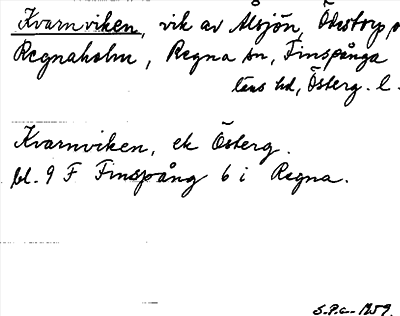 Kvarnviken, vik av Ålsjön, Ödestorp,
Regnaholm, Regna sn, Finspånga
läns hd, Österg. l.
Kvarnviken, ek Österg.
bl. 9 F Finspång 6 i Regna.
S.P.G. 1959.